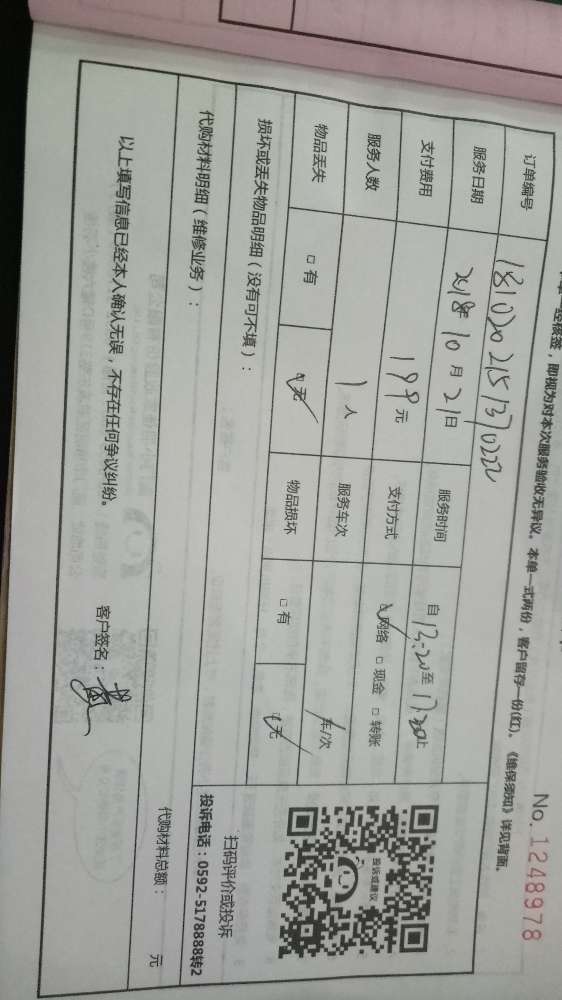 No. 1248978
经核签，即视为对本次服务验收无异议。本单一式两份，客户留存一份(红)。《维保须知》详见背面。
订单编号 181020215137022
服务日期 2018年10月21日 服务时间 自13:20至17:20止
支付费用 199元 支付方式 ☑网络 □现金 □转账
服务人数 1人 服务车次 / 车/次
物品丢失 □有 ☑无 物品损坏 □有 ☑无
损坏或丢失物品明细（没有可不填）：
投诉或建议
扫码评价或投诉
投诉电话：0592-5178888转2
代购材料明细（维修业务）：
代购材料总额： 元
以上填写信息已经本人确认无误，不存在任何争议纠纷。
客户签名：